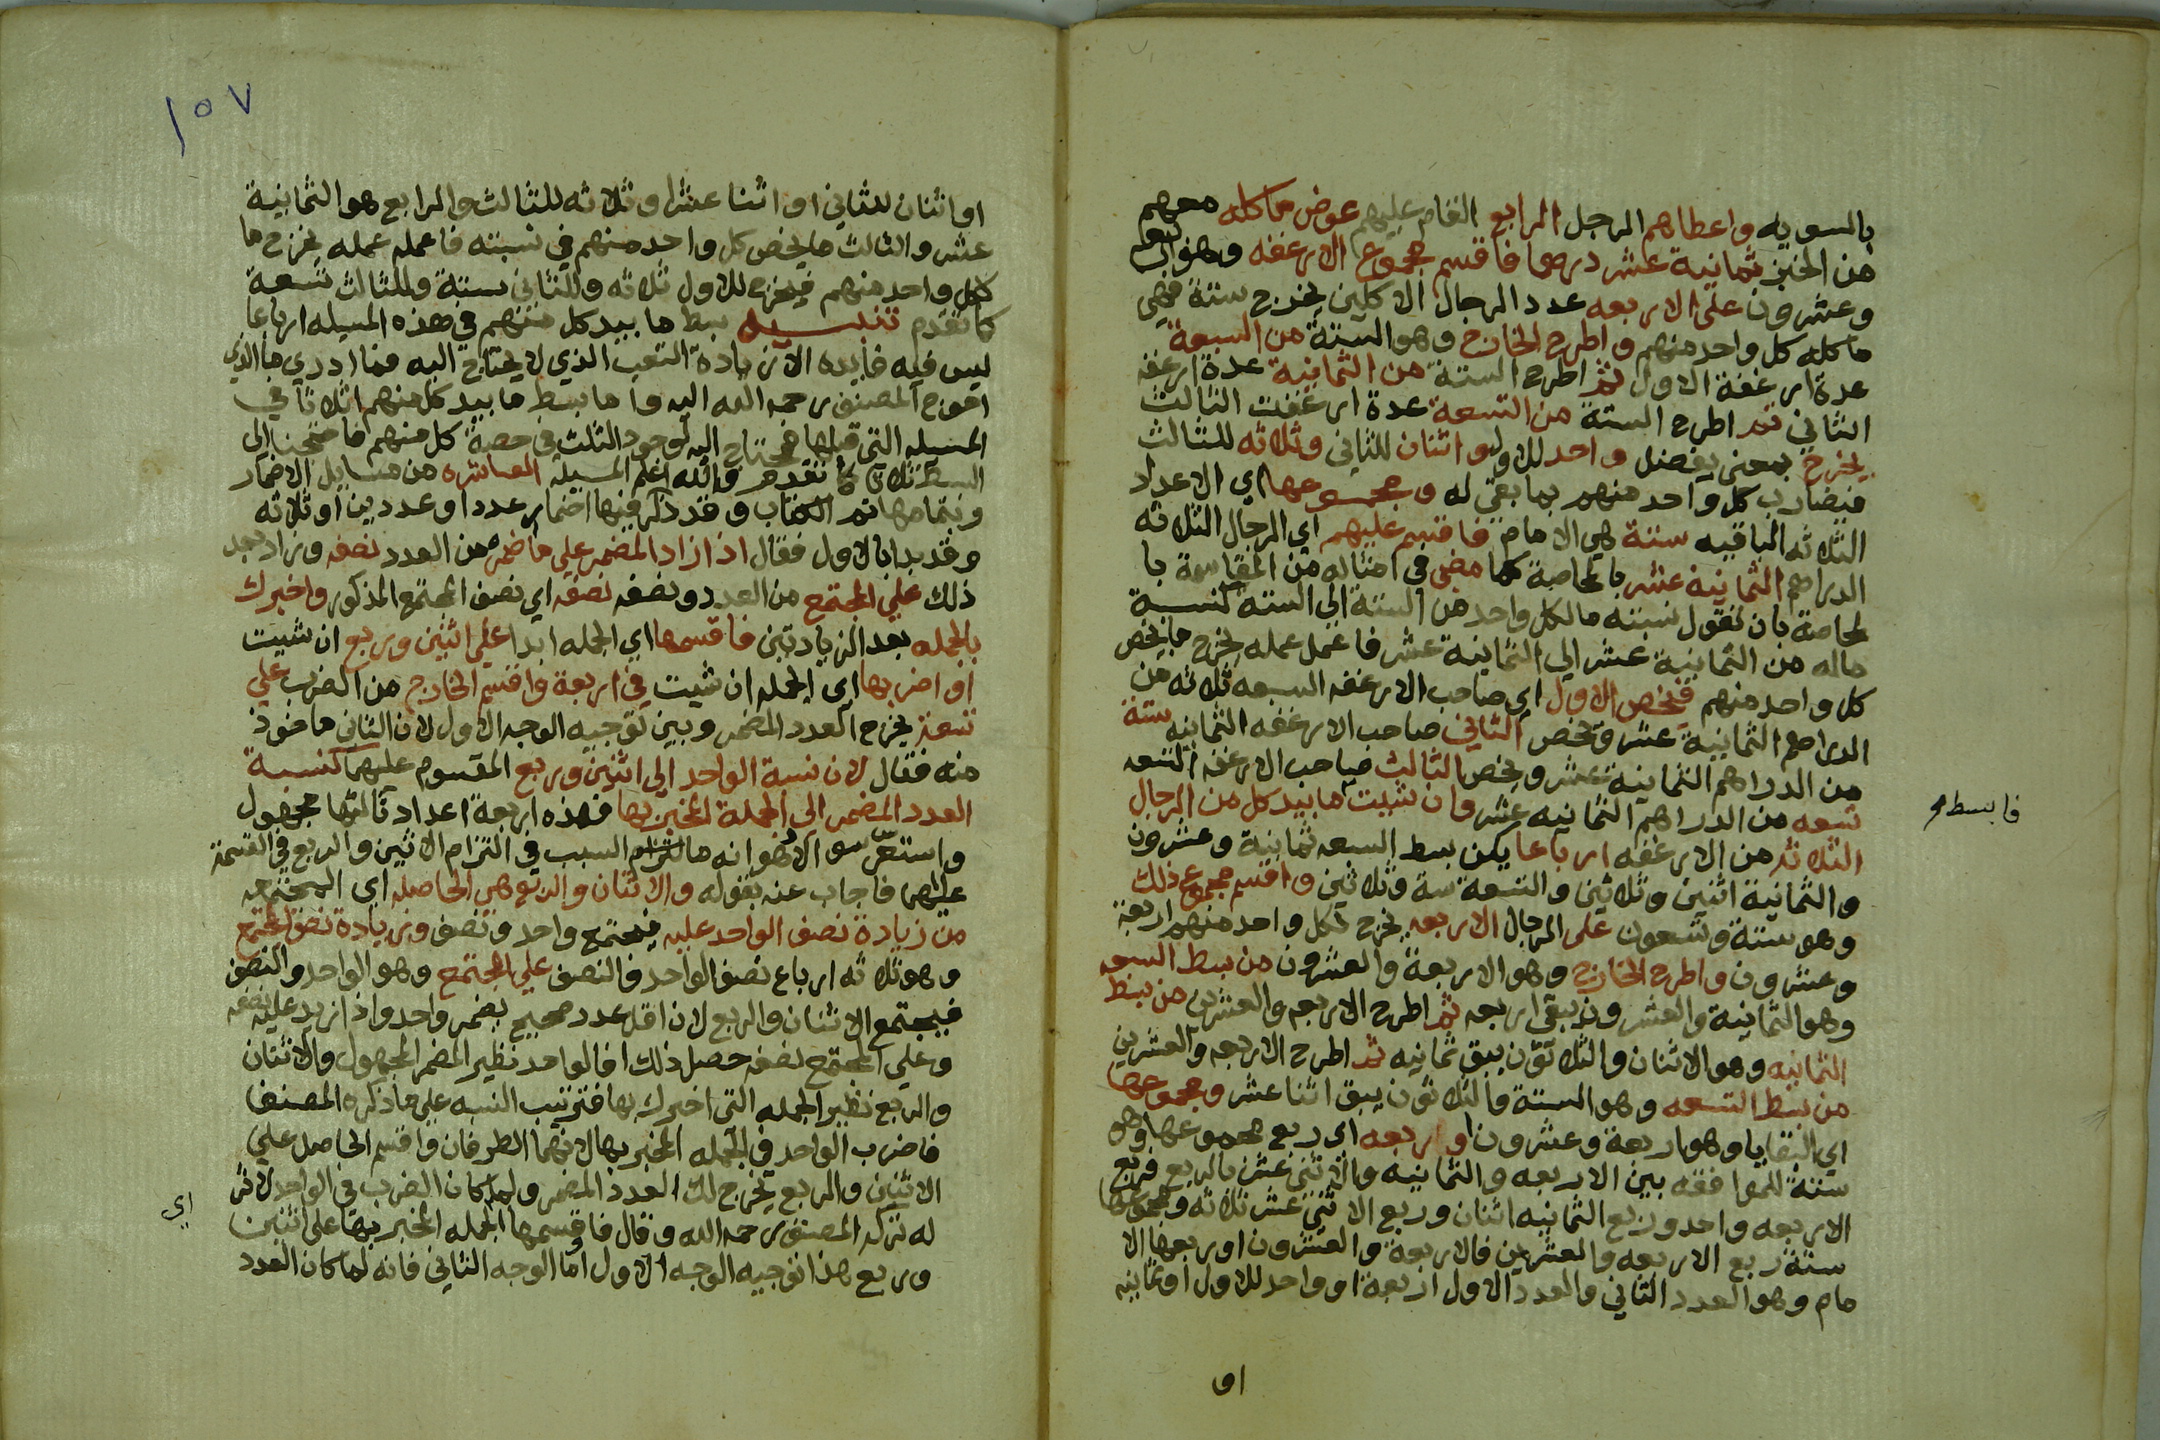 بالسويه واعطاهم الرجل الرابع القام عليهم عوض ماكله معهم
من الخبز ثمانية عشر درهما فاقسم مجموع الارغفه وهو اربعة
وعشرون على الاربعه عدد الرجال الاكلين يخرج ستة فهي
ماكله كل واحد منهم واطرح الخارج وهو الستة من السبعة
عدة ارغفة الاول ثم اطرح الستة من الثمانية عدة ارغفة
الثاني ثم اطرح الستة من التسعة عدة ارغفت الثالث
يخرج بمعنى يفضل واحد للاول واثنان للثاني وثلاثه للثالث
فيضارب كل واحد منهم بما بقي له ومجموعها اي الاعداد
الثلاثه الباقيه ستة هي الامام فاقسم عليهم اي الرجال الثلاثه
الدراهم الثمانية عشر بالمحاصة كما مضى في امثاله من المقاسمة با
لمحاصة بان تقول نسبته مالكل واحد من الستة الي الستة كنسبة
ماله من الثمانية عشر الي الثمانيه عشر فاعمل عمله يخرج ما يخص
كل واحد منهم فيخص الاول اي صاحب الارغفه السبعه ثلاثه من
الدراهم الثمانية عشر ويخص الثاني صاحب الارغفه الثمانيه ستة
من الدراهم الثمانية عشر ويخص الثالث صاحب الارغفه التسعه
تسعه من الدراهم الثمانيه عشر وان شيت ما بيد كل من الرجال
فابسط
الثلاثة من الارغفه ارباعا يكن بسط السبعه ثمانية وعشرون
والثمانية اثنين وثلاثين والتسعة ستة وثلاثين واقسم مجموع ذلك
وهو ستة وتسعون على الرجال الاربعه يخرج لكل واحد منهم اربعة
وعشرون واطرح الخارج وهو الاربعة والعشرون من بسط السبعه
وهو الثمانية والعشرون يبقى اربعه ثم اطرح الاربعه والعشرين من بسط
الثمانيه وهو الاثنان والثلاثون يبق ثمانيه ثم اطرح الاربعه والعشرين
من بسط التسعه وهو الستة والثلاثون يبق اثنا عشر ومجموعها
اي البقايا وهو اربعة وعشرون او اربعه اي ربع مجموعها وهو
ستة للموافقه بين الاربعه والثمانيه والاثني عشر بالربع فربع
الاربعه واحد وربع الثمانيه اثنان وربع الاثني عشر ثلاثه ومجموعها
ستة ربع الاربعه والعشرين فالاربعة والعشرون او ربعها الا
مام وهو العدد الثاني والعدد الاول اربعة او واحد للاول او ثمانيه
او
١٥٧
او اثنان للثاني او اثنا عشر او ثلاثه للثالث والرابع هو الثمانية
عشر والثالث ما يخص كل واحد منهم في نسبته فاعمله عمله يخرج ما
لكل واحد منهم فيخرج للاول ثلاثه وللثاني ستة وللثالث تسعة
كما تقدم تنبيه بسط ما بيد كل منهم في هذه المسيله ارباعا
ليس فيه فايده الا زيادة التعب الذي لا يحتاج اليه فما ادري ما الذي
احوج المصنف رحمه الله اليه واما بسط ما بيد كل منهم اثلاثا في
المسيله التي قبلها فمحتاج اليه لوجود الثلث في حصة كل منهم فاحتجنا الى
البسط ثلاثا كما تقدم والله اعلم المسيلة العاشره من مسايل الاضمار
وبتمامها تم الكتاب وقد ذكر فيها اضمار عددا وعددين او ثلاثه
وقد بدا بالاول فقال اذا زاد المضمر علي ما ضمر من العدد نصفه وزاد بعد
ذلك علي المجتمع من العدد ونصفه نصفه اي نصف المجتمع المذكور واخبرك
بالجمله بعد الزيادتين فاقسمها اي الجمله ابدا علي اثنين وربع ان شيت
او اضربها اي الجمله ان شيت في اربعة واقسم الخارج من الضرب علي
تسعة يخرج العدد المضمر وبين توجيه الوجه الاول لان الثاني ماخوذ
منه فقال لان نسبة الواحد الي اثنين وربع المقسوم عليهما كنسبة
العدد المضمر الى الجملة المخبر بها فهذه اربعة اعداد ثالثها مجهول
واستشعر سوالا وهو انه ما السبب في التزام الاثنين والربع في القسمة
عليهما فاجاب عنه بقوله والاثنان والربع هي الحاصله اي المجتمعه
من زيادة نصف الواحد عليه فيجتمع واحد ونصف وزيادة نصف المجتمع
وهو ثلاثه ارباع نصف الواحد والنصف علي المجتمع وهو الواحد والنصف
فيجتمع الاثنان والربع لان اقل عدد صحيح يضمر واحد واذا زيد عليه نصفه
وعلي المجتمع نصفه حصل ذلك فالواحد نظير المضمر المجهول والاثنان
والربع نظير الجمله التي اخبرك بها فترتيب النسبه علي ما ذكره المصنف
فاضرب الواحد في الجمله المخبر بها لانهما الطرفان واقسم الحاصل علي
الاثنين والربع يخرج لك العدد المضمر ولما كان الضرب في الواحد لا اثر
له تركه المصنف رحمه الله وقال فاقسمها الجمله المخبر بها على اثنين
اي
وربع هذا توجيه الوجه الاول اما الوجه الثاني فانه لما كان العدد